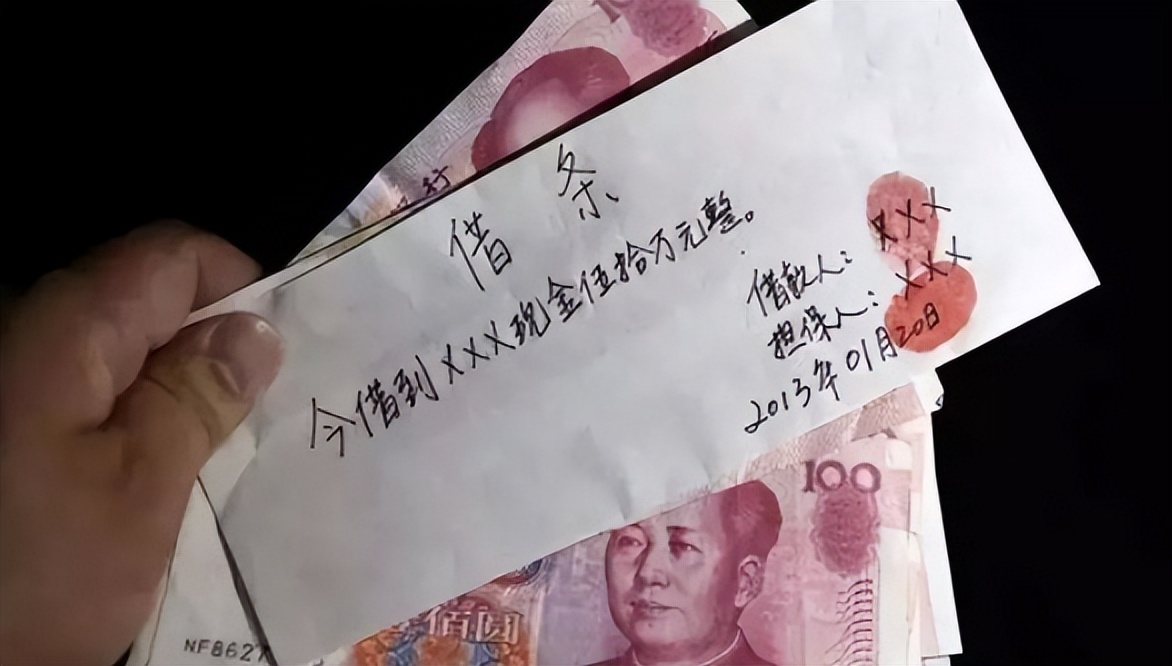 借 条
今借到XXX现金伍拾万元整。
借款人：XXX
担保人：XXX
2013年01月20日
行
100
佰圆
NF8627